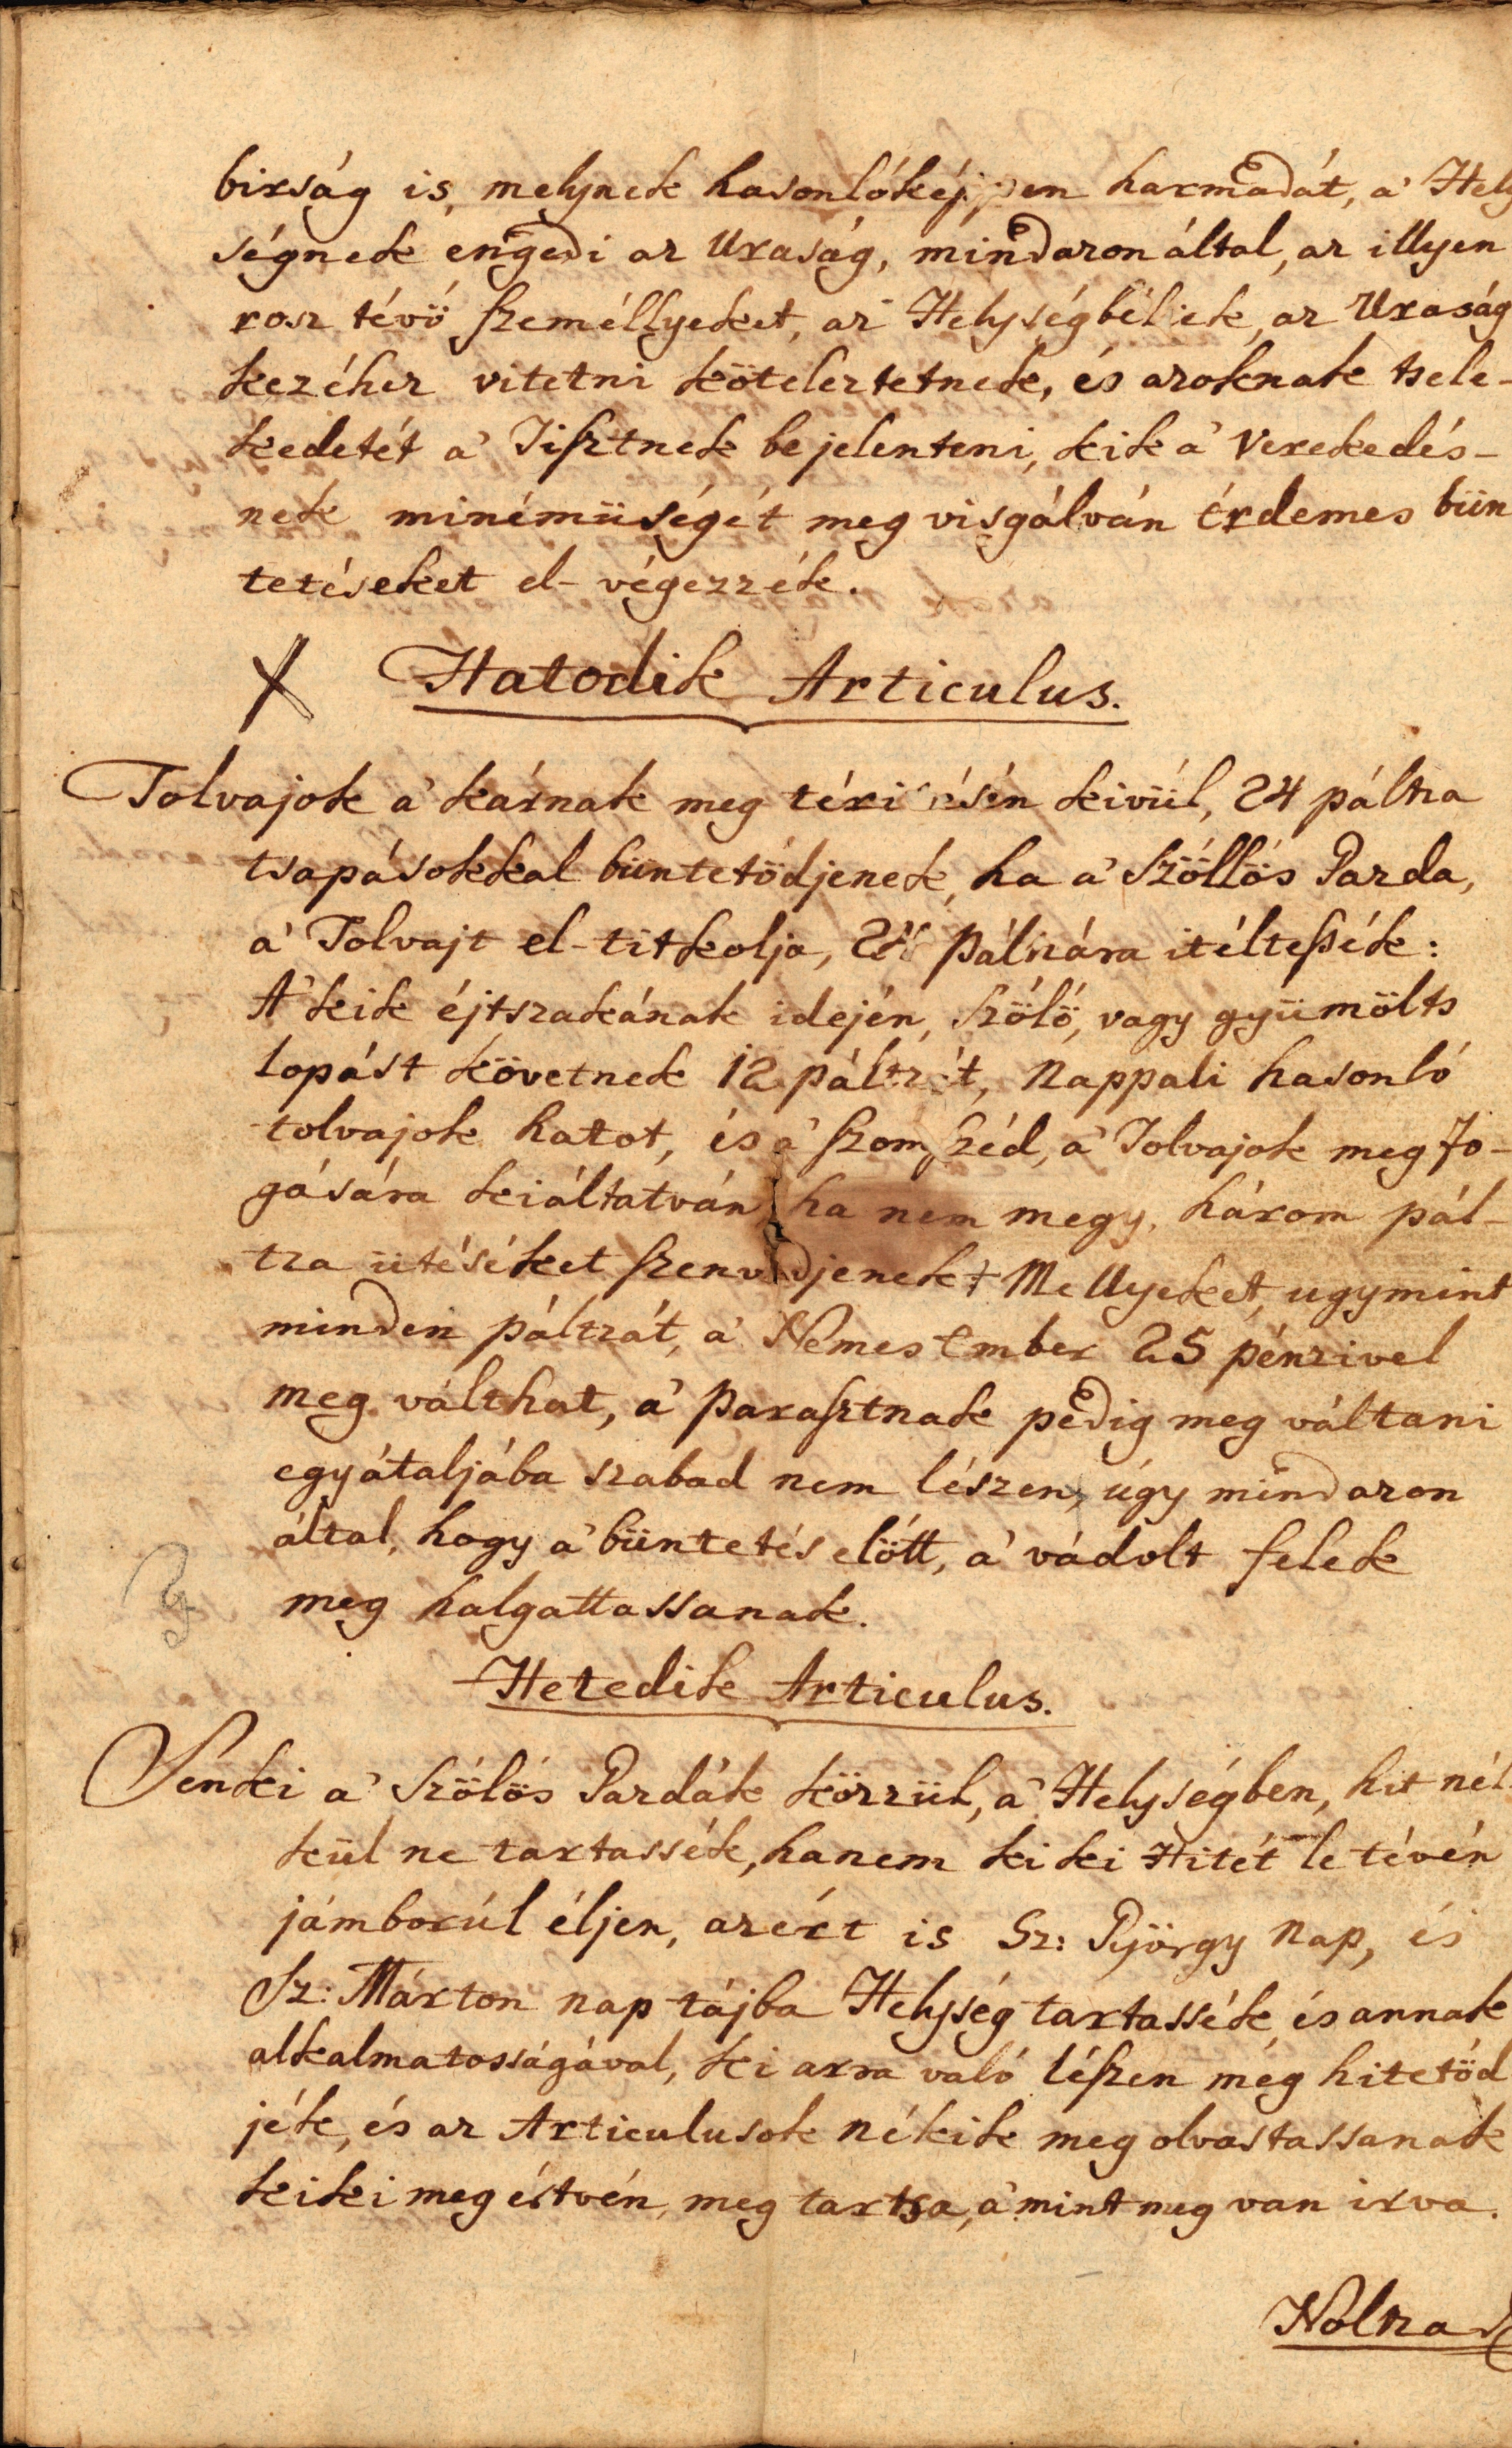 birság is, melynek hasonlóképpen harmadát, a' Hely
ségnek engedi az Uraság, mindazon által, az illyen
rosz tévő személlyeket, az Helységbéliek, az Uraság
kezéhez vitetni köteleztetnek, és azoknak tsele-
kedetét a' Tisztnek be jelenteni, kik a' Verekedés-
nek minémüségét meg visgálván érdemes bün
tetéseket el-végezzék.
X Hatodik Articulus.
Tolvajok a' kárnak meg téritésén kivül, 24 páltza
tsapásokkal büntetödjenek, ha a' Szöllös Gazda,
a' Tolvajt el-titkolja, páltzára itéltessék:
A' kik éjtszakának idején, Szölö, vagy gyümölts
lopást követnek 12 páltzát, Nappali hasonló
tolvajok hatot, és a' szomszéd, a' Tolvajok meg fo-
gására kiáltatván ha nem megy, három pál-
tza ütéséket szenvedjenek Mellyeket, ugymint
minden páltzát, a' Nemes Ember 25 pénzivel
meg válthat, a' Parasztnak pedig meg váltani
egyátaljába szabad nem lészen, úgy mindazon
által, hogy a' büntetés elött, a' vádolt felek
meg halgattassanak.
Hetedik Articulus.
Senki a' Szölös Gazdák közzül, a' Helységben, hit nél
kül ne tartassék, hanem ki ki Hitét le tévén
jámborúl éljen, azért is Sz: György Nap, és
Sz: Márton nap tájba Helység tartassék, és annak
alkalmatosságával, ki arra való lészen még hitetöd
jék, és az Articulusok nékik meg olvastassanak
kiki meg értvén, meg tartsa, a' mint meg van irva.